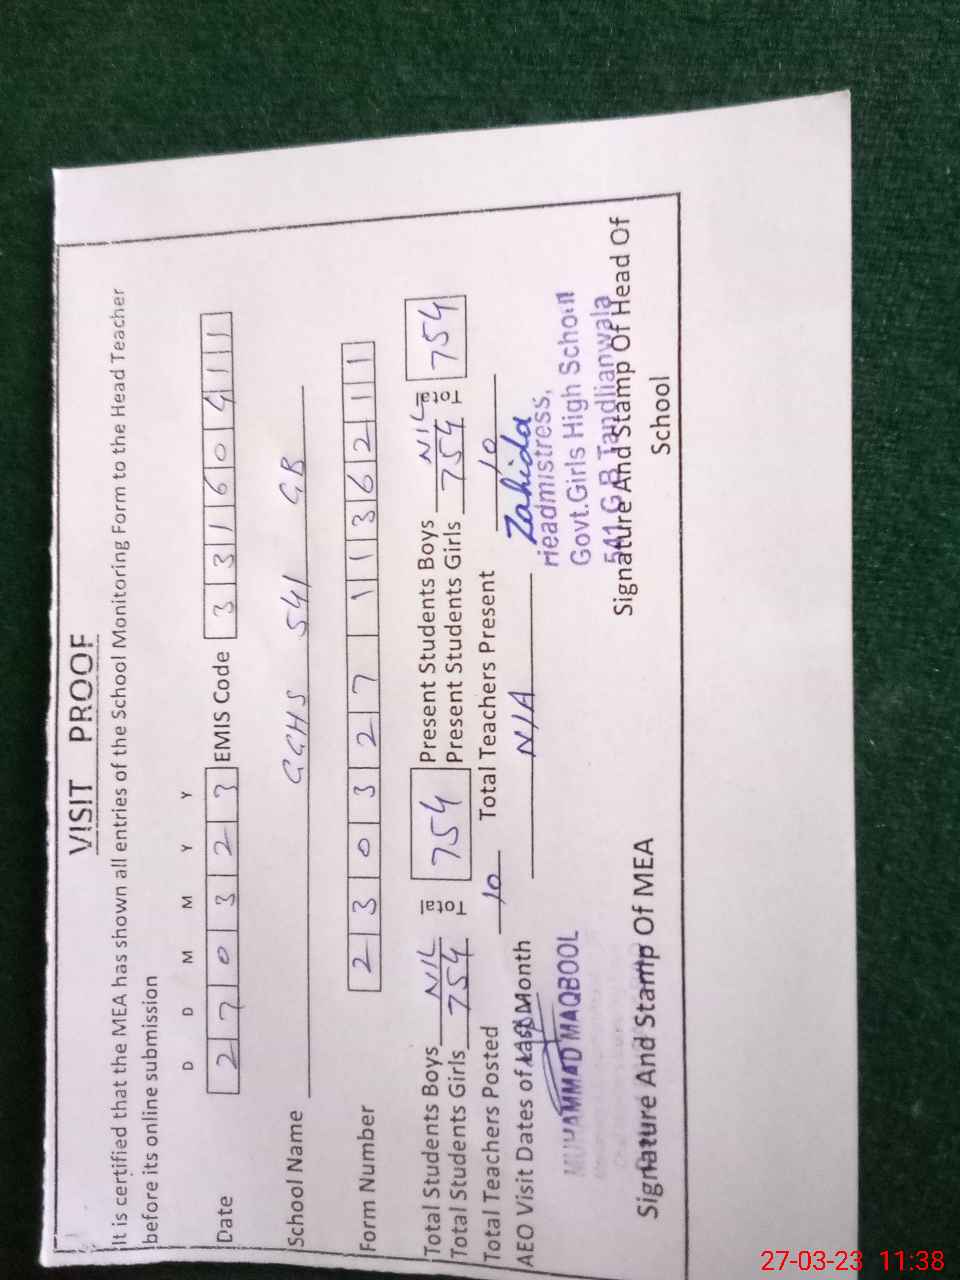 VISIT PROOF
It is certified that the MEA has shown all entries of the School Monitoring Form to the Head Teacher
before its online submission
D D M M Y Y
Date 2 7 0 3 2 3 EMIS Code 3 3 1 6 0 4 1 1
School Name GGHS 541 GB
Form Number 2 3 0 3 2 7 1 1 3 6 2 1 1
Total Students Boys NIL Total 754 Present Students Boys NIL Total 754
Total Students Girls 754 Present Students Girls 754
Total Teachers Posted 10 Total Teachers Present 10
AEO Visit Dates of Last Month N/A
Zahida
Headmistress,
MUHAMMAD MAQBOOL Govt.Girls High School
541 G B Tandlianwala
Signature And Stamp Of MEA Signature And Stamp Of Head Of
School
27-03-23 11:38